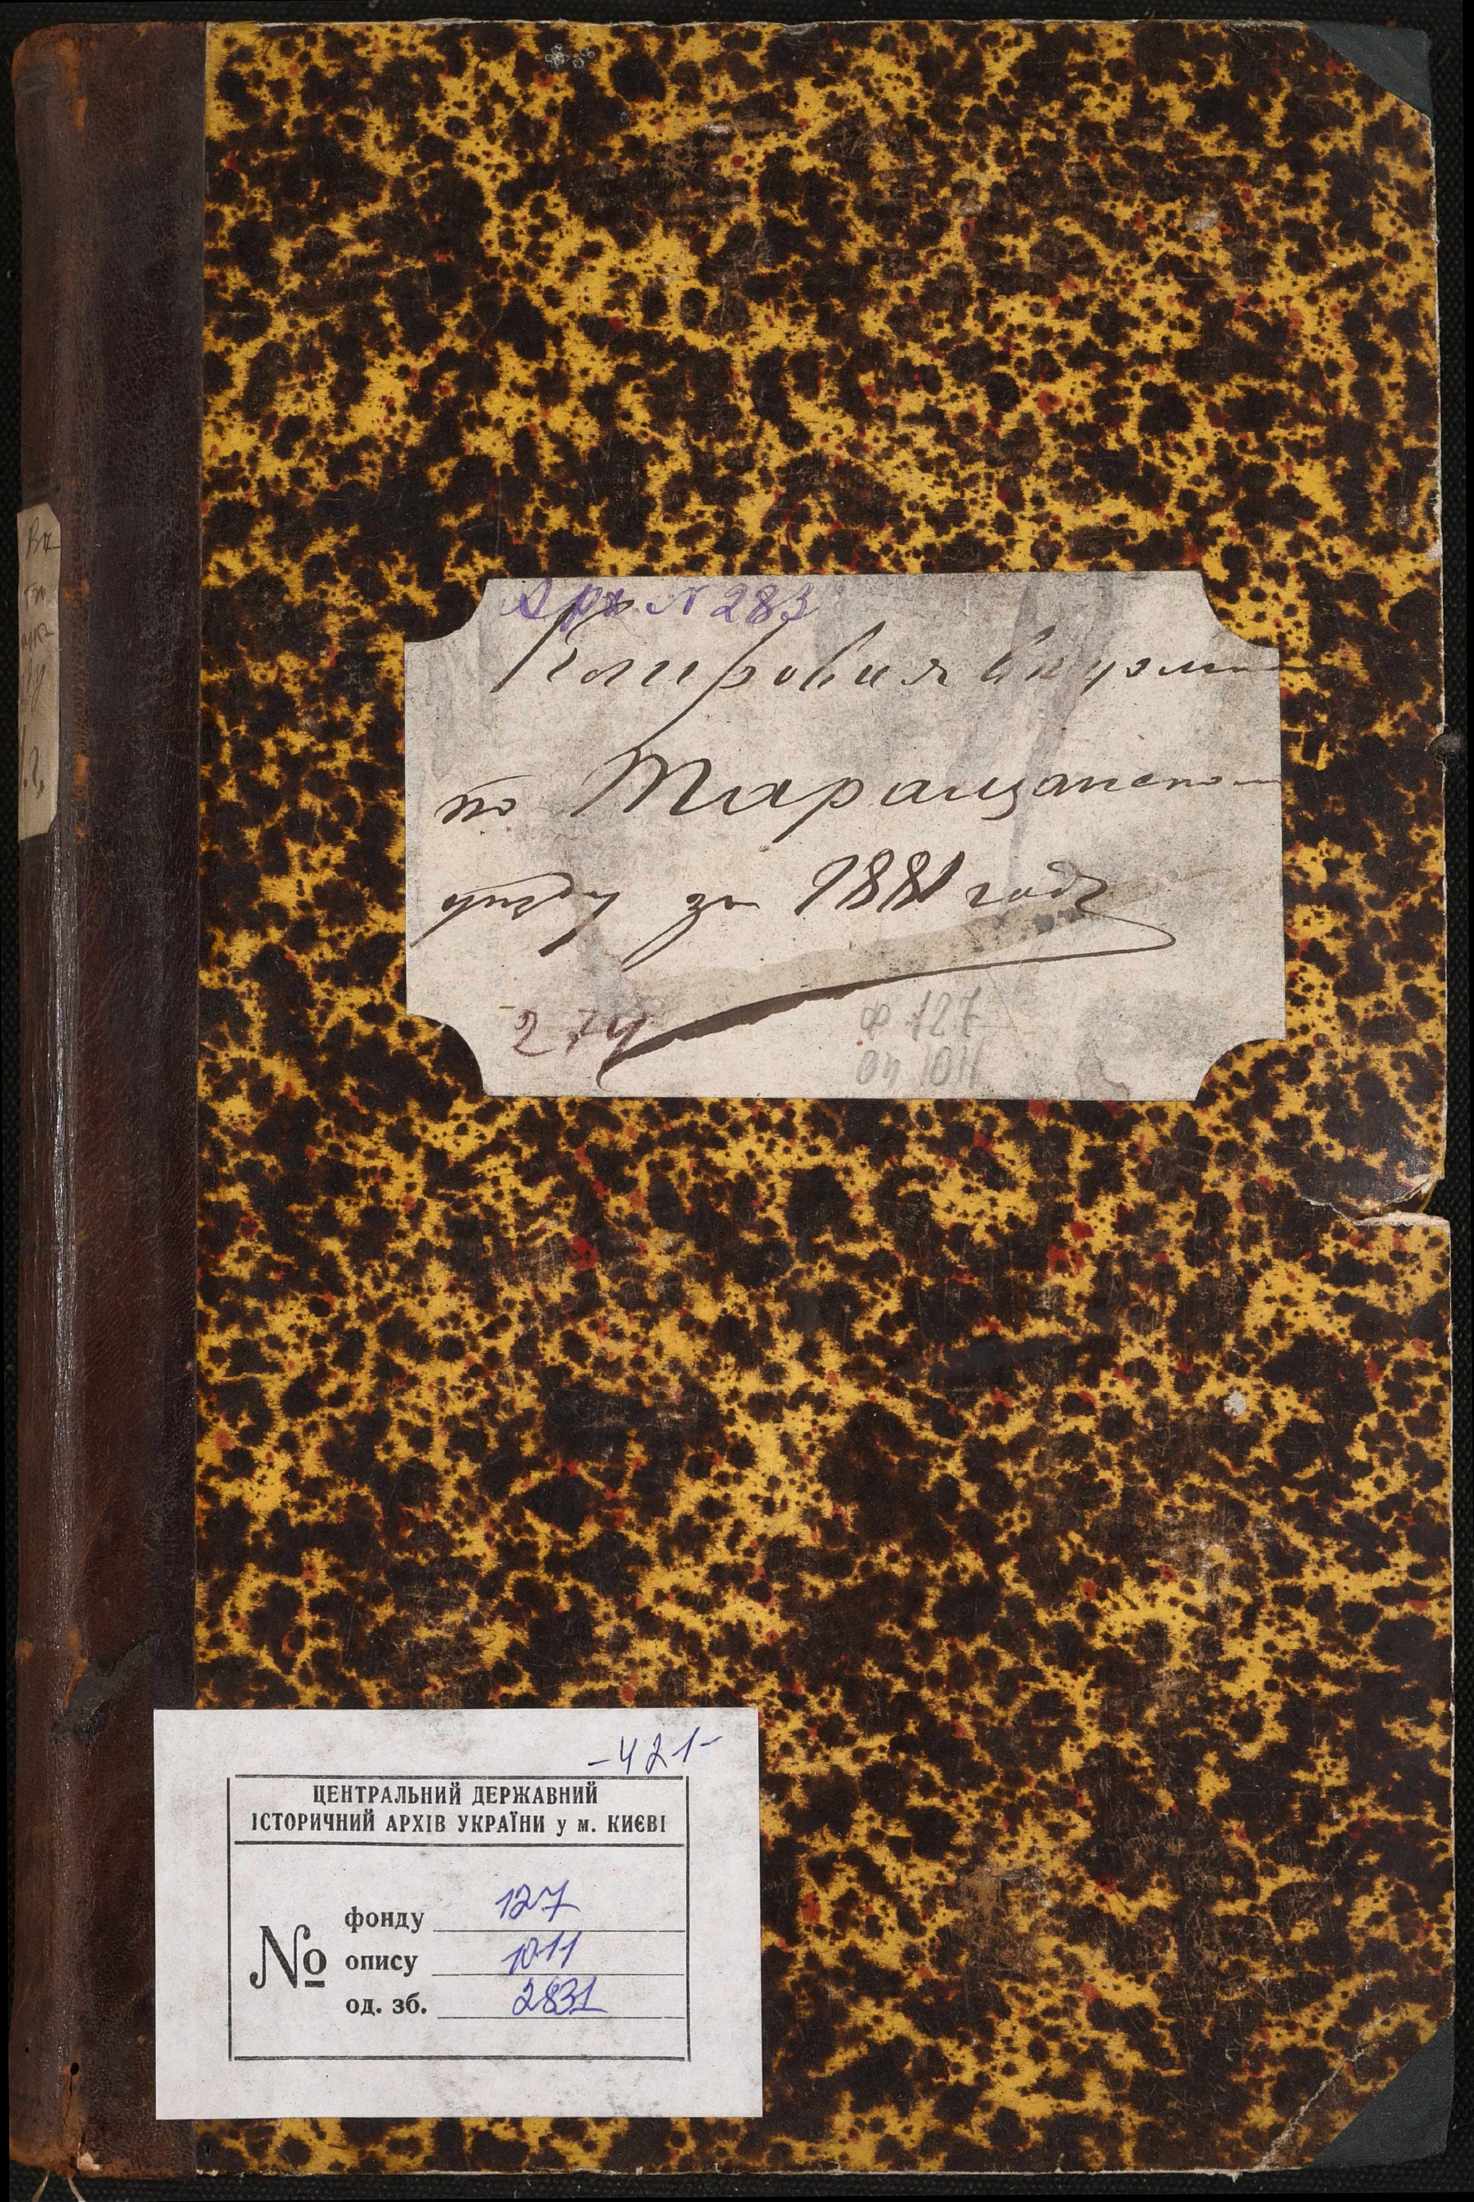 Арх. № 283
по Таращанско
уезду за 1881 годъ
274
ф 127
оп 1011
-421-
ЦЕНТРАЛЬНИЙ ДЕРЖАВНИЙ
ІСТОРИЧНИЙ АРХІВ УКРАЇНИ у м. КИЄВІ
№
фонду 127
опису 1011
од. зб. 2831